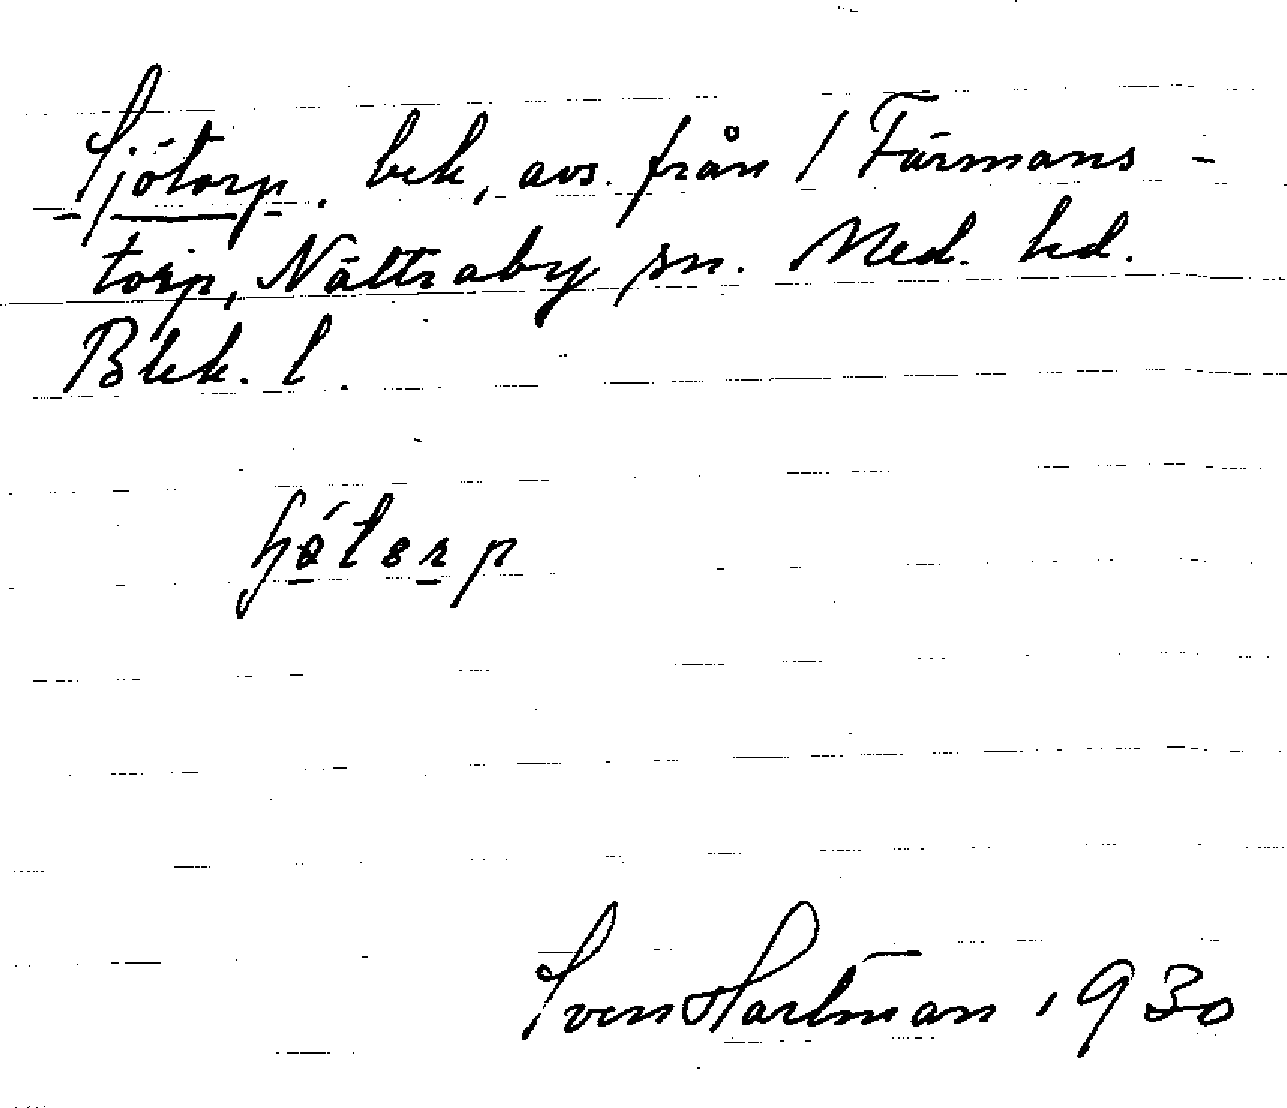 Sjötorp. bek, avs. från 1 Färmans-
torp, Nättraby sn. Med. hd.
Blek. l.
Sven Hartman 1930